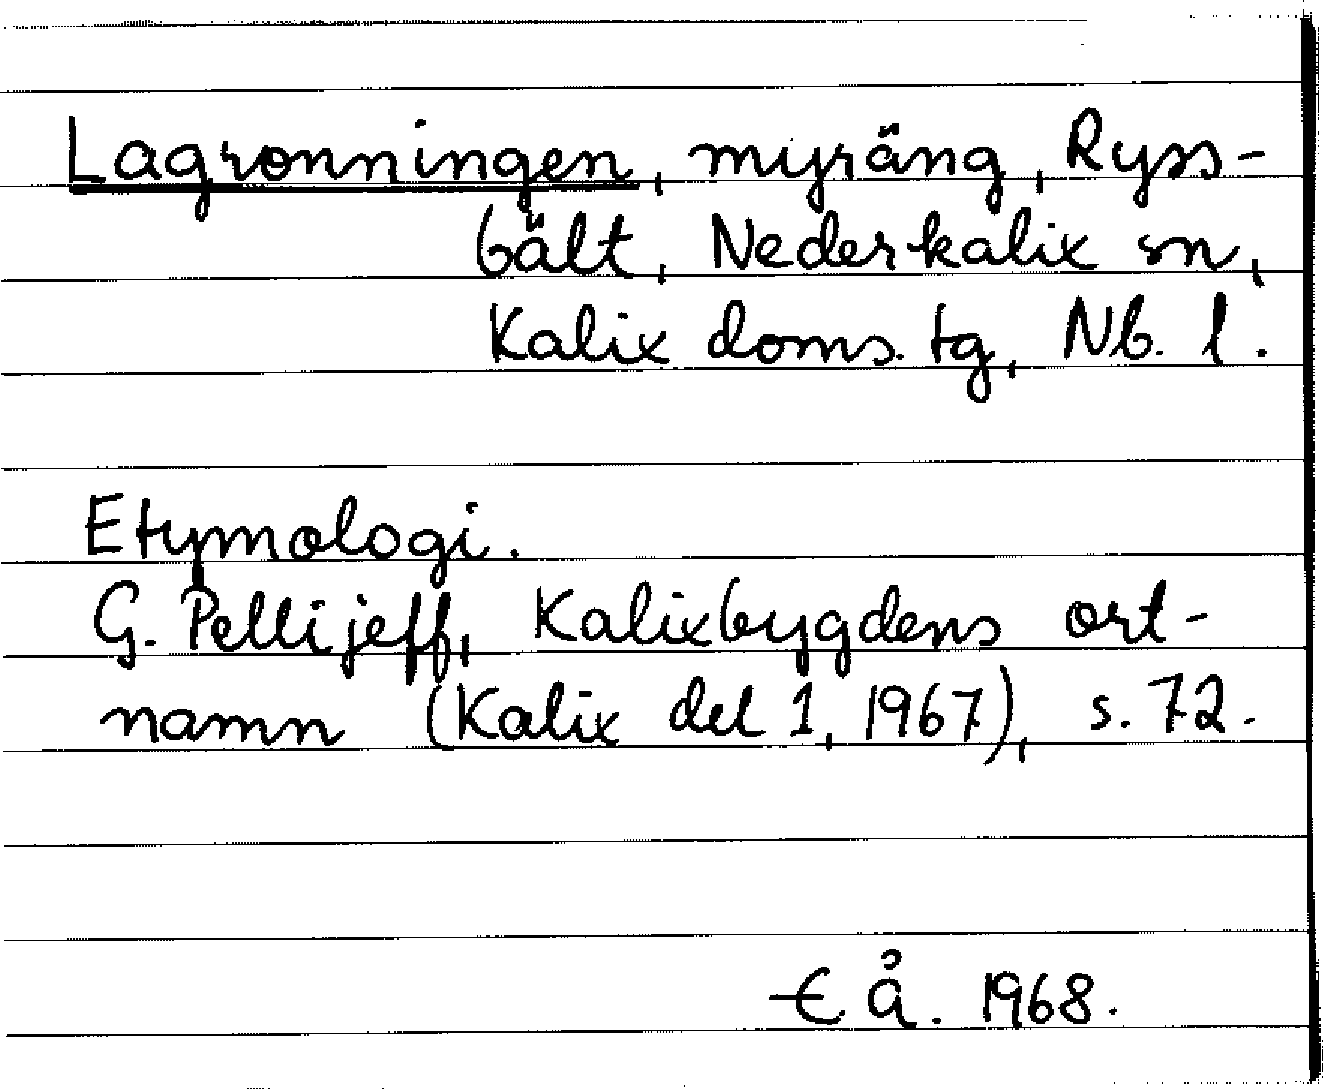 Lagronningen, myräng, Ryss-
bält, Nederkalix sn,
Kalix doms. tg, Nb. l.
Etymologi.
G. Pellijeff, Kalixbygdens ort-
namn (Kalix del 1, 1967), s. 72.
E. Å. 1968.